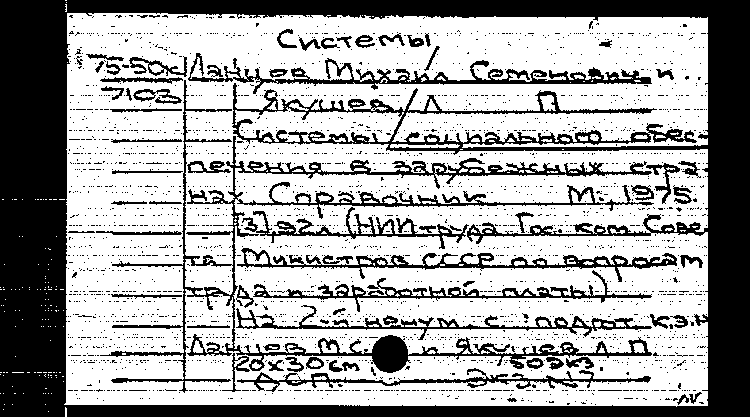 Системы
75-50к Ланцев Михаил Семенович и ..
7103 Якушев, Л П
Системы социального обес-
печения в зарубежных стра-
нах. Справочник. М., 1975.
[3], 92л (НИИ труда Гос. ком Сове-
та Министров СССР по вопросам
труда и заработной платы)
На 2-й ненум. с.: подгот. к.э.н
Ланцев М.С. и Якушев Л П
20х30см 50экз.
ДСП. Экз. №7